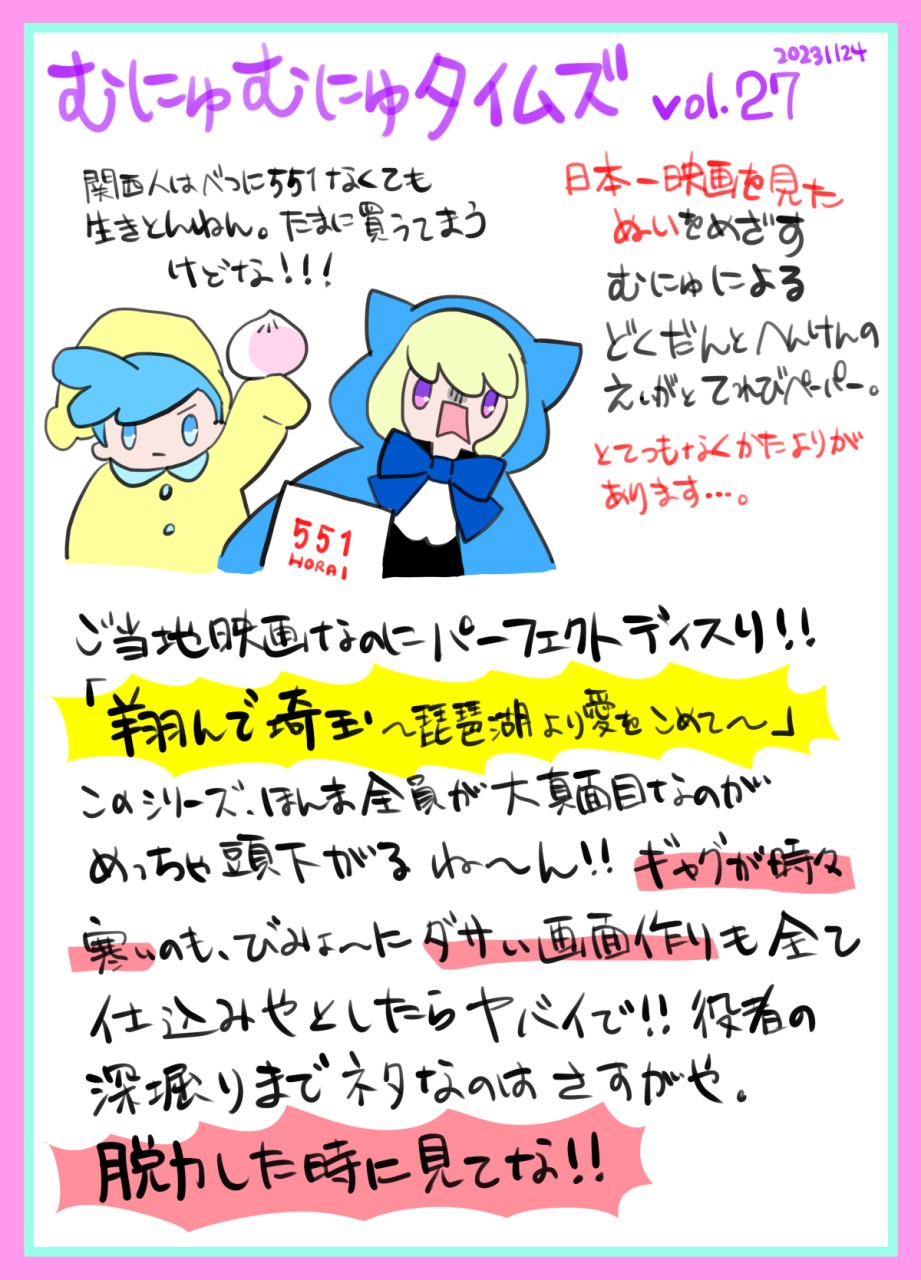 むにゅむにゅタイムズ vol.27
20231124
関西人はべつに551なくても
生きとんねん。たまに買うてまう
けどな!!!
日本一映画を見た
ぬいをめざす
むにゅによる
どくだんとへんけんの
えいがとてれびペーパー。
とてつもなくかたよりが
あります…。
551
HORAI
ご当地映画なのにパーフェクトディスり!!
「翔んで埼玉〜琵琶湖より愛をこめて〜」
このシリーズ、ほんま全員が大真面目なのが
めっちゃ頭下がるね〜ん!!ギャグが時々
寒いのも、びみょ〜にダサい画面作りも全て
仕込みやとしたらヤバイで!!役者の
深堀りまでネタなのはさすがや。
脱力した時に見てな!!